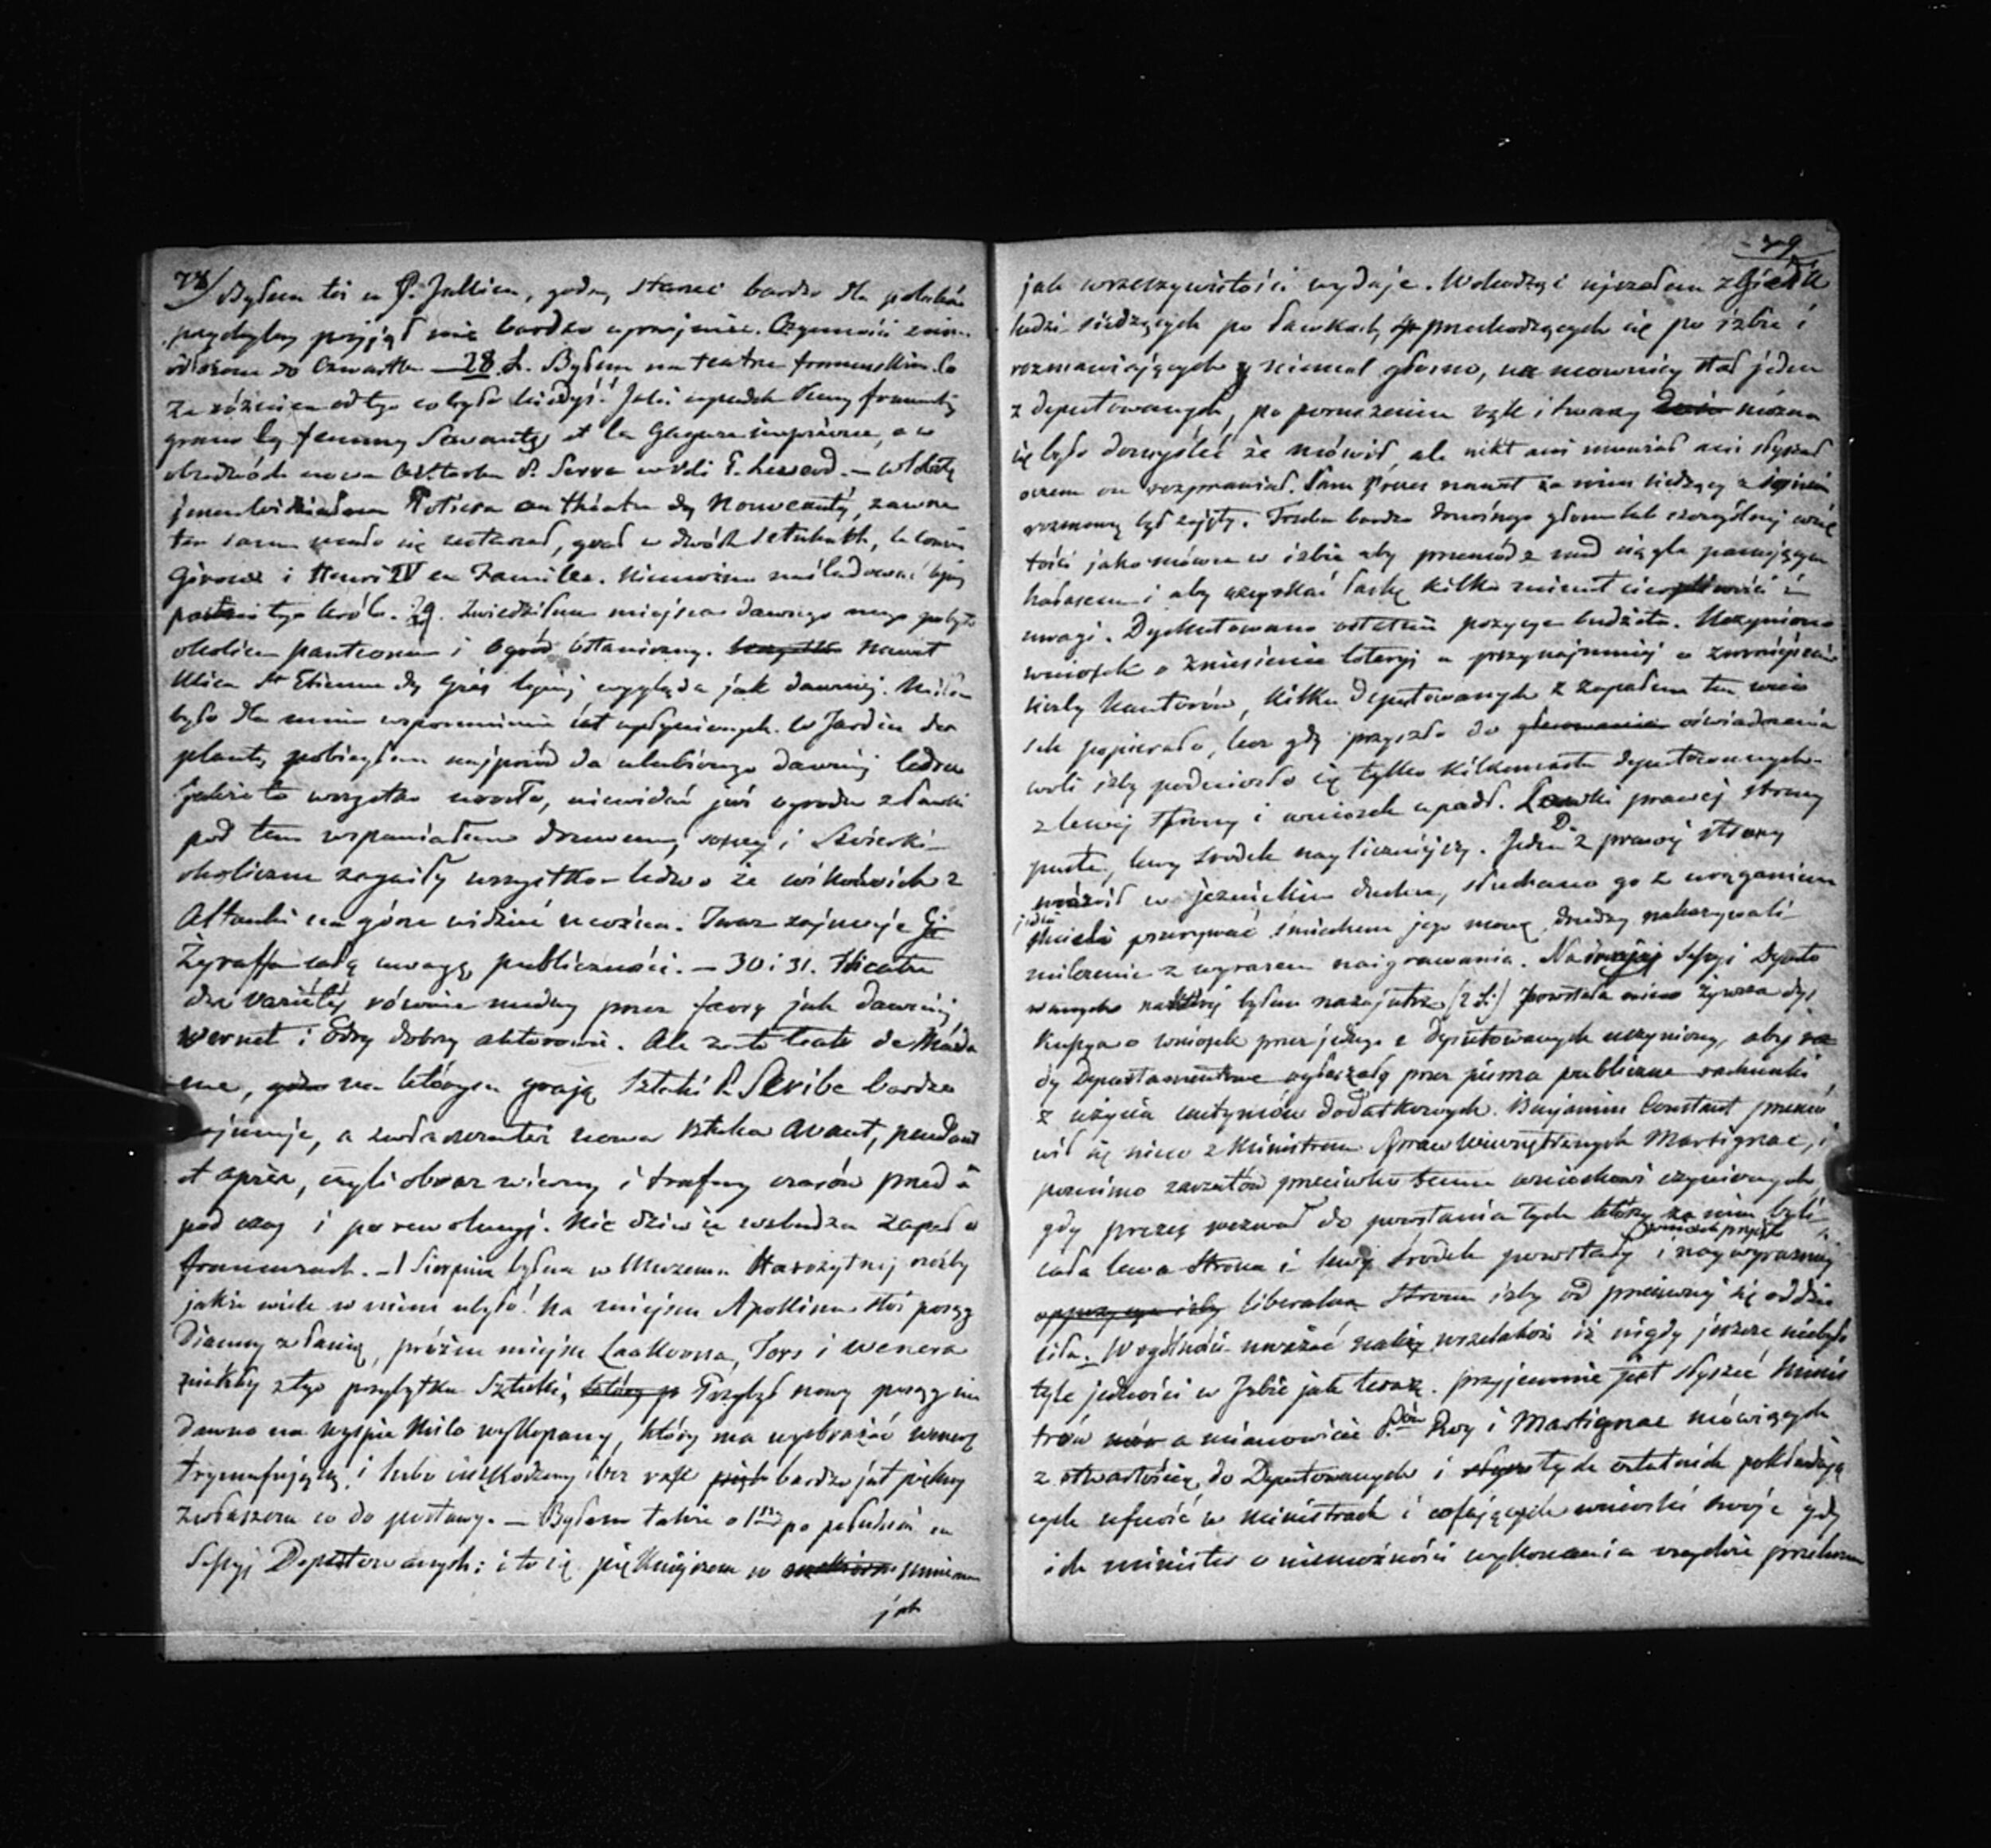 78/ Byłem też u P. Jullien, godny starzec bardzo dla polaków
przychylny przyjął mię bardzo uprzejmie. Czynności
odłożone do Czwartku — 28. L. Byłem na teatrze francuskim. Co
za różnica od tego co było kiedyś! Jakiż upadek Sceny francuskiej
grano les femmes Savantes et la Gageure imprévue, a w
obydwóch nowa P. Serre w roli P. Leverd. —
jeszcze widziałem Potiera au théatre des Nouveautés, zawsze
ten sam mało się zestarzał, grał w dwóch sztukach, le cousin
Giraud i Henri IV en famille. Niemożna naśladować lepiej
tego króla. 29. Zwiedziłem miejsca dawnego mego pobytu
okolice panteonu i Ogród botaniczny. nawet
Ulica St Etienne des Grès lepiej wygląda jak dawniej. Miłe
było dla mnie wspomnienie lat upłynionych. W Jardin des
plantes pobiegłem najprzód do ulubionego dawniej Cedru
Jakże to wszystko urosło, niewidać już ogrodu z ławki
pod tem wspaniałem drzewem, sosny i Świerki
okoliczne zagaiły wszystko ledwo że cokolwiek z
Altanki na górze widzieć można. Teraz zajmuje
Żyraffa całą uwagę publiczności. — 30 i 31. Theatre
des Variétés równie nudny przez farsy jak dawniej
Vernet i Odry dobrzy aktorowie. Ale za to teatr de Mada
me, na którym grają Sztuki P. Scribe bardzo
zajmuje, a zwłaszcza też nowa sztuka Avant, pendant
et après, czyli obraz wierny i trafny czasów przed i
pod czas i po rewolucyi. Nic dziw że wzbudza zapał w
francuzach. — 1 Sierpnia byłem w Muzeum Starożytnej rzeźby
jakże wiele w niem ubyło! Na miejscu Apollina stoi posąg
Dianny z łanią, próżne miejsce Laokoona, Tors i Wenera
znikły z tego przybytku Sztuki, który p Przybył nowy posąg nie
dawno na wyspie Milo wykopany, który ma wyobrażać Wenerę
tryumfującą, i lubo uszkodzony i bez rąk bardzo jest piękny
zwłaszcza co do postawy. — Byłem także o 1szej po południu na
Sessyi Deputowanych; i to się piękniejszem w mniemaniu
jak
79
jak w rzeczywistości wydaje. Wchodząc ujrzałem zgiełk
ludzi siedzących po ławkach, przechodzących się po izbie i
rozmawiających niemal głośno, na mownicy stał jeden
z deputowanych, po poruszeniu rąk i twarzy można
się było domyśleć że mówił, ale nikt ani uważał ani słyszał
o czem on rozprawiał. Sam Prezes nawet za nim siedzący z
rozmową był zajęty. Trzeba bardzo donośnego głosu lub szczególnej wzię
tości jako mówca w izbie aby przemódz nad ciągle panującym
hałasem i aby uzyskać łaskę kilka minut cierpliwości i
uwagi. Dyskutowano ostatnie pozycye budżetu. Uczyniono
wniosek o zniesienie loteryi a przynajmniej o zmniejszenie
liczby Kantorów, kilku deputowanych z zapałem ten wnio
sek popierało, lecz gdy przyszło do głosowania oświadczenia
woli izby podniosło się tylko kilkunastu deputowanych
z lewej strony i wniosek upadł. Ławki prawej strony
puste, lewy środek najliczniejszy. Jeden D. z prawej strony
mówił w jezuickim duchu, słuchano go z urąganiem
jedni chcieli przerywać śmiechem jego mowę, drudzy nakazywali
milczenie z wyrazem naigrawania. Na sessyi Deputo
wanych na której byłem nazajutrz (2 S:) powstała nieco żywsza dys
kussya o wniosek przez jednego z deputowanych uczyniony, aby ra
dy Departamentowe ogłaszały przez pisma publiczne rachunki
z użycia centymów dodatkowych. Benjamin Constant przemó
wił się nieco z Ministrem Spraw Wewnętrznych Martignac, i
pomimo zarzutów przeciwko temu wnioskowi czynionych
gdy prezes wezwał do powstania tych którzy za nim byli
cała lewa strona i lewy środek powstały wniosek przyjęto i najwyraźniej
oppozycya izby liberalna strona izby od przeciwnej się oddzie
liła. W ogólności uważać należy wszelakoż iż nigdy jeszcze niebyło
tyle jedności w Izbie jak teraz. Przyjemnie jest słyszeć Minis
trów a mianowicie P.ów Roy i Martignac mówiących
z otwartością do Deputowanych i tychże ostatnich pokładają
cych ufność w ministrach i cofających wnioski swoje gdy
ich minister o niemożności wykonania